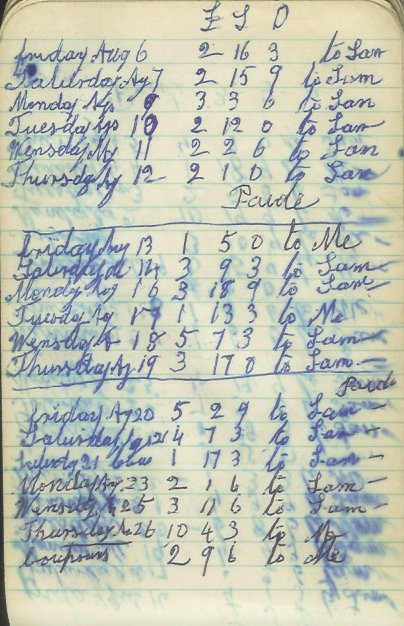 £ S D
friday Aug 6 2 16 3 to Sam
Saturday Ag 7 2 15 9 to Sam
Monday Ag 9 3 3 6 to Sam
Tuesday Ag 10 2 12 0 to Sam
Wensday Ag 11 2 2 6 to Sam
Thursday Ag 12 2 1 0 to Sam
Paide
friday Aug 13 1 5 0 to Me
Saturday 14 3 9 3 to Sam
Mondy Aug 16 3 18 9 to Sam
Tuesday Ag 17 1 13 3 to Me
Wensday A 18 5 7 3 to Sam
Thursday Ag 19 3 17 0 to Sam
Paide
friday Ag 20 5 2 9 to Sam
Saturday Ag 21 4 7 3 to Sam
Saturdy 21 1 17 3 to Sam
Monday Ag 23 2 1 6 to Sam
Wensday Ag 25 3 11 6 to Sam
Thursday Ag 26 10 4 3 to Me
2 9 6 to Me